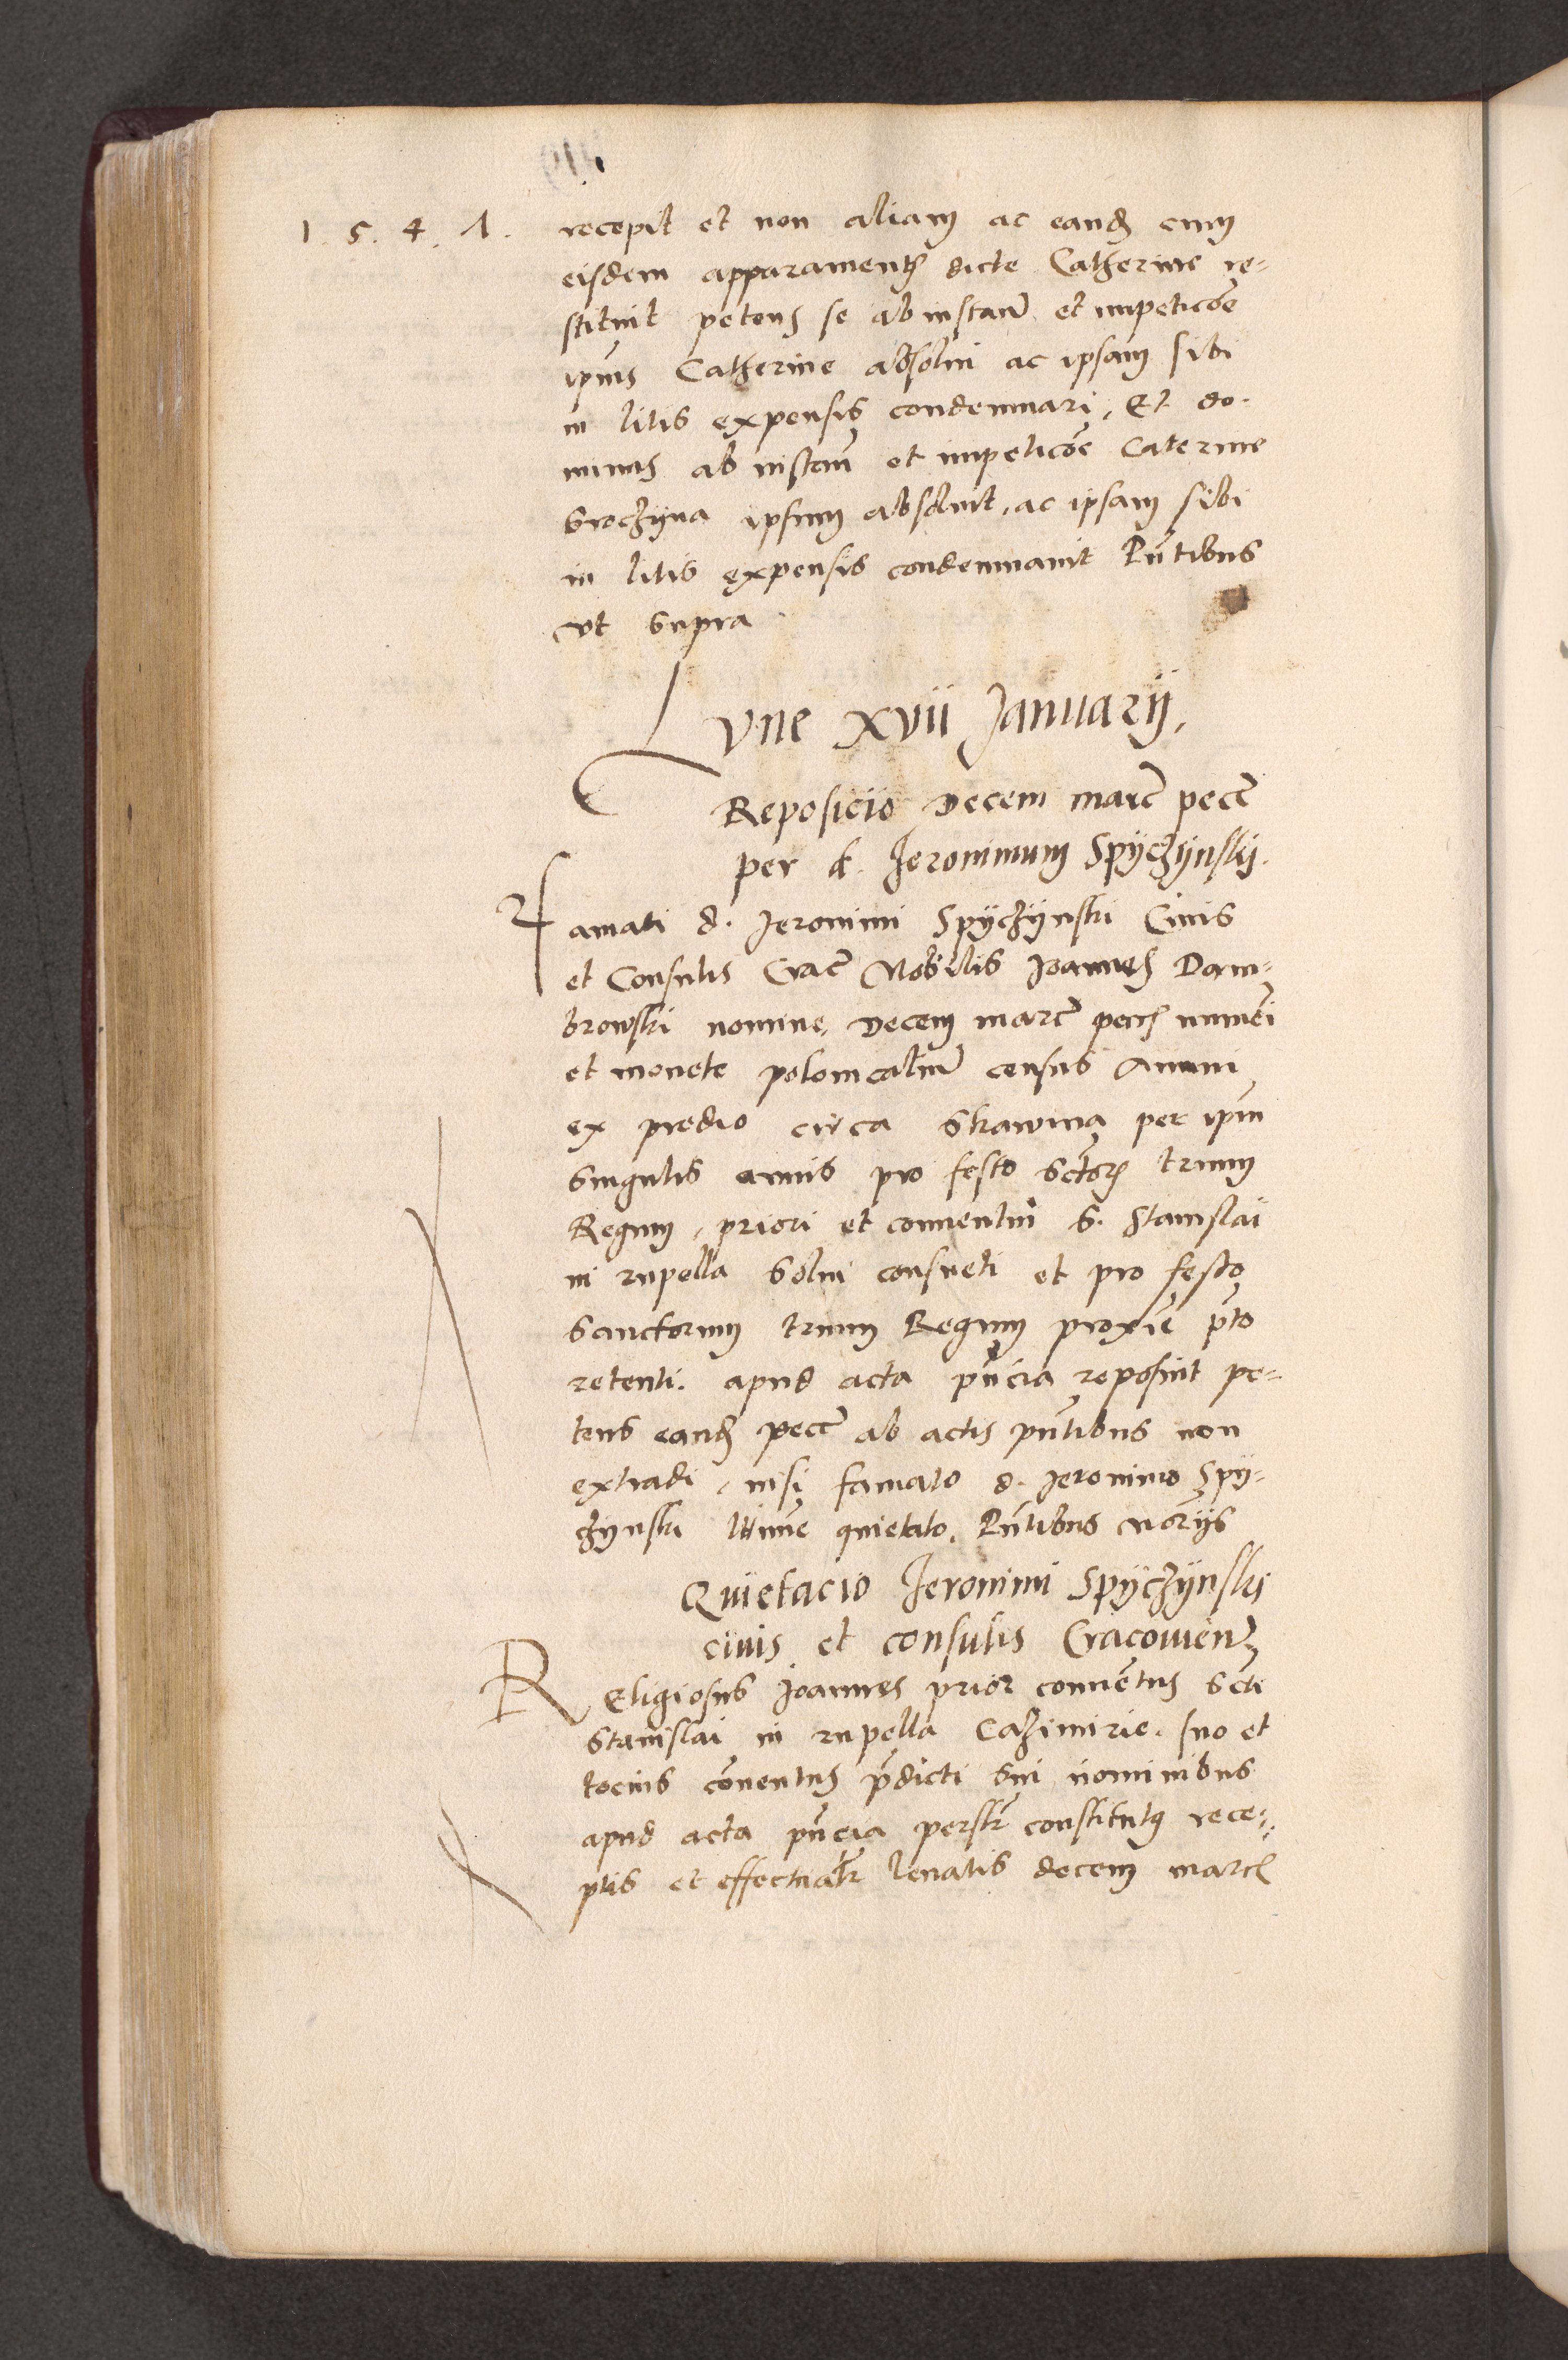 1. 5. 4. 1.
recepit et non aliam ac eand cum
eisdem apparament dicte Catherine re-
stituit petens se ab instan et impeticõe
ipius Catherine absolui ac ipsam sibi
in litis expensis condemnari, Et do-
minus ab instan et impeticõe Caterine
Srochyna ipsum absoluit, ac ipsam sibi
in litis expensis condemnauit Pñtibus
vt supra
Lvne XVII Januarij.
Reposicio Decem marc pecc
per d. Jeronimum Spyczÿnskj.
Famati d. Jeronimi Spÿczÿnski Ciuis
et Consulis Crac Nobilis Joannes Dam-
browski nomine, Decem marc pecc numeri
et monete polonicaliu census Annui
ex predio circa Skawina per ipm
singulis annis pro festo sctor trium
Regum, priori et conuentui S. Stanislai
in rupella solui consueti et pro festo
Sanctorum trium Regum proxie pto
retenti. apud acta pñcia reposuit pe-
tens eand pecc ab actis pñtibus non
extradi, nisi famato d. Jeronimo Spÿ-
czÿnski ltime quietato. Pñtibus notrijs
Quietacio Jeronimi Spÿczÿnski
ciuis et consulis Cracouien
Religiosus Joannes prior conuetus scti
Stanislai in rupella Cazimirie. suo et
tocius conuentus pdicti sui nominibus
apud acta pñcia perslr constitutus rece-
ptis et effectualr leuatis decem marc